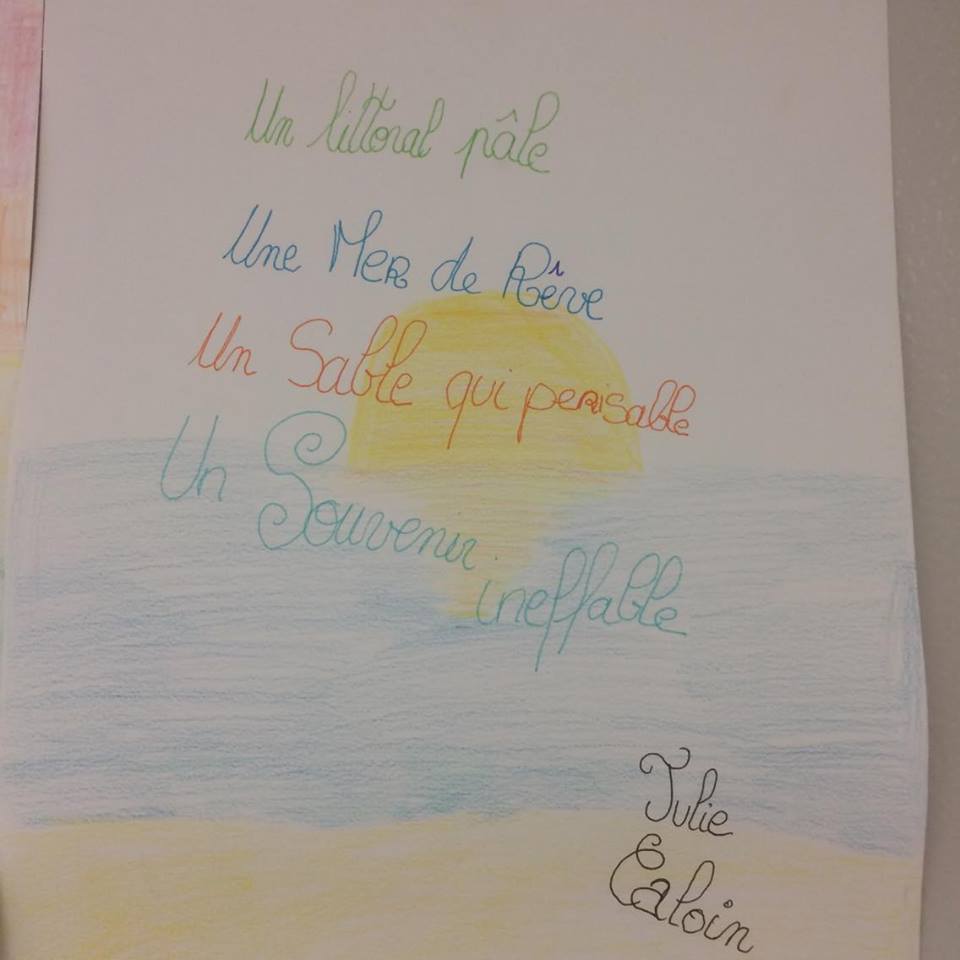 Un littoral pâle
Une Mer de Rêve
Un Sable qui perisable
Un Souvenir
ineffable
Julie
Caloin